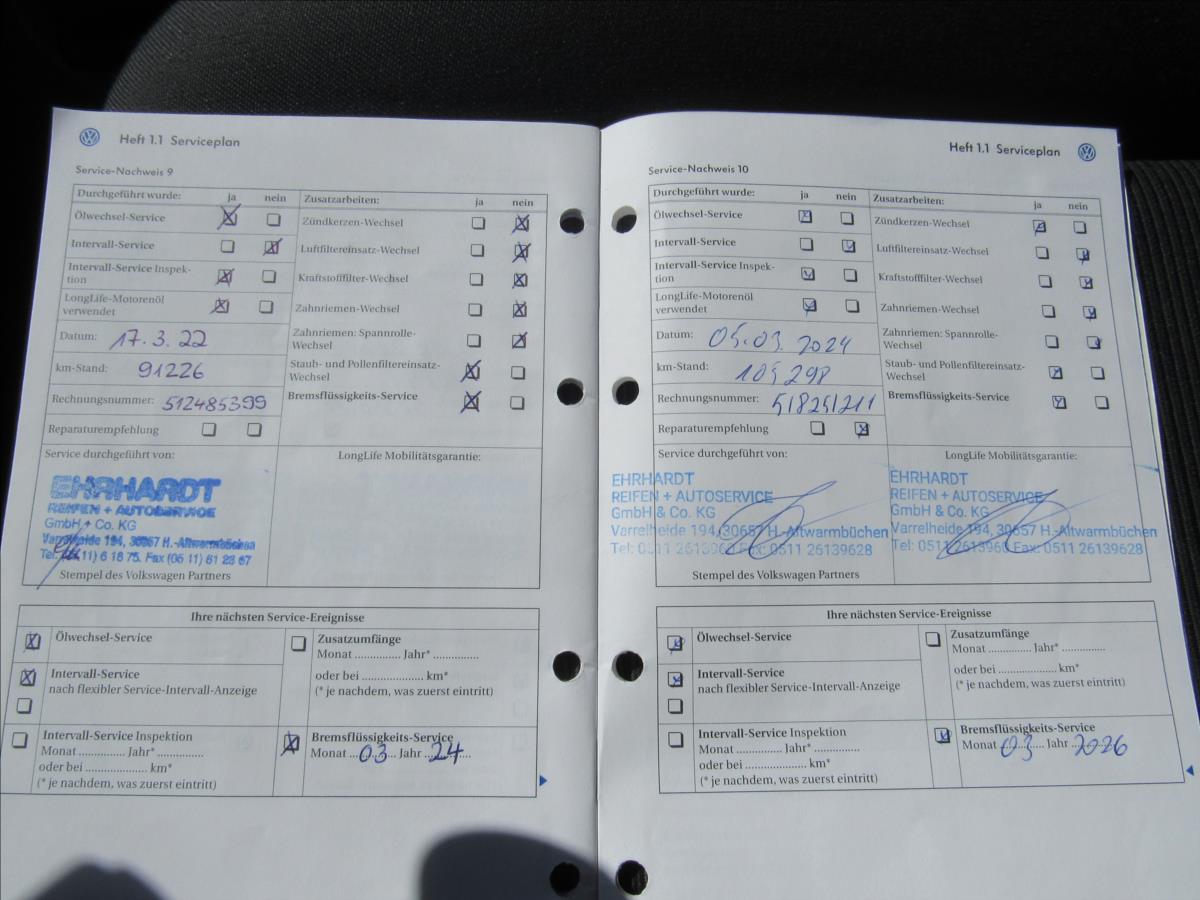 Heft 1.1 Serviceplan
Service-Nachweis 9
Durchgeführt wurde: ja nein Zusatzarbeiten: ja nein
Ölwechsel-Service Zündkerzen-Wechsel
Intervall-Service Luftfiltereinsatz-Wechsel
Intervall-Service Inspek-
tion
Kraftstofffilter-Wechsel
LongLife-Motorenöl
verwendet
Zahnriemen-Wechsel
Datum: 17.3.22
Zahnriemen: Spannrolle-
Wechsel
km-Stand: 91226
Staub- und Pollenfiltereinsatz-
Wechsel
Rechnungsnummer: 512485399
Bremsflüssigkeits-Service
Reparaturempfehlung
Service durchgeführt von: LongLife Mobilitätsgarantie:
EHRHARDT
REIFEN + AUTOSERVICE
GmbH + Co. KG
Varrelheide 194, 30657 H.-Altwarmbüchen
Stempel des Volkswagen Partners
Ihre nächsten Service-Ereignisse
Ölwechsel-Service
Intervall-Service
nach flexibler Service-Intervall-Anzeige
Zusatzumfänge
Monat .............. Jahr* ..............
oder bei ................... km*
(* je nachdem, was zuerst eintritt)
Intervall-Service Inspektion
Monat .............. Jahr* ..............
oder bei ................... km*
(* je nachdem, was zuerst eintritt)
Bremsflüssigkeits-Service
Monat 03 Jahr 24
Heft 1.1 Serviceplan
Service-Nachweis 10
Durchgeführt wurde: ja nein Zusatzarbeiten: ja nein
Ölwechsel-Service Zündkerzen-Wechsel
Intervall-Service Luftfiltereinsatz-Wechsel
Intervall-Service Inspek-
tion
Kraftstofffilter-Wechsel
LongLife-Motorenöl
verwendet
Zahnriemen-Wechsel
Datum: 05.03.2024
Zahnriemen: Spannrolle-
Wechsel
km-Stand: 105298
Staub- und Pollenfiltereinsatz-
Wechsel
Rechnungsnummer: 518251211
Bremsflüssigkeits-Service
Reparaturempfehlung
Service durchgeführt von: LongLife Mobilitätsgarantie:
EHRHARDT
REIFEN + AUTOSERVICE
GmbH & Co. KG
Varrelheide 194, 30657 H.-Altwarmbüchen
Tel: 0511 2613960 Fax: 0511 26139628
EHRHARDT
REIFEN + AUTOSERVICE
GmbH & Co. KG
Varrelheide 194, 30657 H.-Altwarmbüchen
Tel: 0511 2613960 Fax: 0511 26139628
Stempel des Volkswagen Partners
Ihre nächsten Service-Ereignisse
Ölwechsel-Service
Intervall-Service
nach flexibler Service-Intervall-Anzeige
Zusatzumfänge
Monat .............. Jahr* ..............
oder bei ................... km*
(* je nachdem, was zuerst eintritt)
Intervall-Service Inspektion
Monat .............. Jahr* ..............
oder bei ................... km*
(* je nachdem, was zuerst eintritt)
Bremsflüssigkeits-Service
Monat 03 Jahr 2026